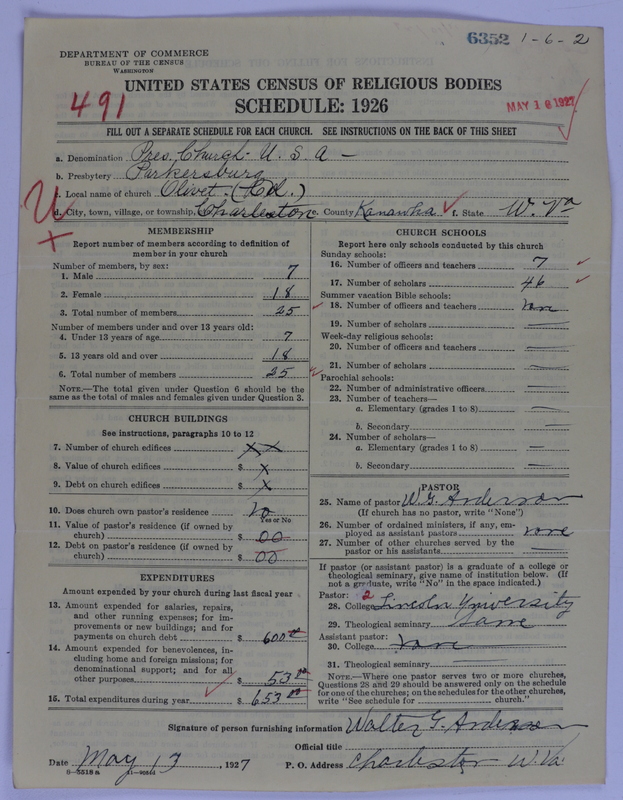 6352 1-6-2
DEPARTMENT OF COMMERCE
BUREAU OF THE CENSUS
WASHINGTON
UNITED STATES CENSUS OF RELIGIOUS BODIES
SCHEDULE: 1926
491
MAY 18 1927
FILL OUT A SEPARATE SCHEDULE FOR EACH CHURCH. SEE INSTRUCTIONS ON THE BACK OF THIS SHEET
a. Denomination Pres. Church U.S.A-
b. Presbytery Parkersburg
c. Local name of church Olivet. (Col.)
d. City, town, village, or township, Charleston e. County Kanawha f. State W. Va
U
X
MEMBERSHIP
Report number of members according to definition of
member in your church
Number of members, by sex:
1. Male 7
2. Female 18
3. Total number of members 25
Number of members under and over 13 years old:
4. Under 13 years of age 7
5. 13 years old and over 18
6. Total number of members 25
NOTE.—The total given under Question 6 should be the
same as the total of males and females given under Question 3.
CHURCH BUILDINGS
See instructions, paragraphs 10 to 12
7. Number of church edifices X X
8. Value of church edifices $ X
9. Debt on church edifices $ X
10. Does church own pastor's residence No
Yes or No
11. Value of pastor's residence (if owned by
church) $ 00
12. Debt on pastor's residence (if owned by
church) $ 00
EXPENDITURES
Amount expended by your church during last fiscal year
13. Amount expended for salaries, repairs,
and other running expenses; for im-
provements or new buildings; and for
payments on church debt $ 600 00
14. Amount expended for benevolences, in-
cluding home and foreign missions; for
denominational support; and for all
other purposes $ 53 00
15. Total expenditures during year $ 653 00
CHURCH SCHOOLS
Report here only schools conducted by this church
Sunday schools:
16. Number of officers and teachers 7
17. Number of scholars 46
Summer vacation Bible schools:
18. Number of officers and teachers None
19. Number of scholars —
Week-day religious schools:
20. Number of officers and teachers —
21. Number of scholars —
Parochial schools:
22. Number of administrative officers —
23. Number of teachers—
a. Elementary (grades 1 to 8) —
b. Secondary —
24. Number of scholars—
a. Elementary (grades 1 to 8) —
b. Secondary —
PASTOR
25. Name of pastor W. G. Anderson
(If church has no pastor, write "None")
26. Number of ordained ministers, if any, em-
ployed as assistant pastors none
27. Number of other churches served by the
pastor or his assistants —
If pastor (or assistant pastor) is a graduate of a college or
theological seminary, give name of institution below. (If
not a graduate, write "No" in the space indicated.)
Pastor: 2
28. College Lincoln University
29. Theological seminary Same
Assistant pastor:
30. College None
31. Theological seminary —
NOTE.—Where one pastor serves two or more churches,
Questions 28 and 29 should be answered only on the schedule
for one of the churches; on the schedules for the other churches,
write "See schedule for church."
Signature of person furnishing information Walter G. Anderson
Official title
Date May 13, 1927 P. O. Address Charleston W. Va.